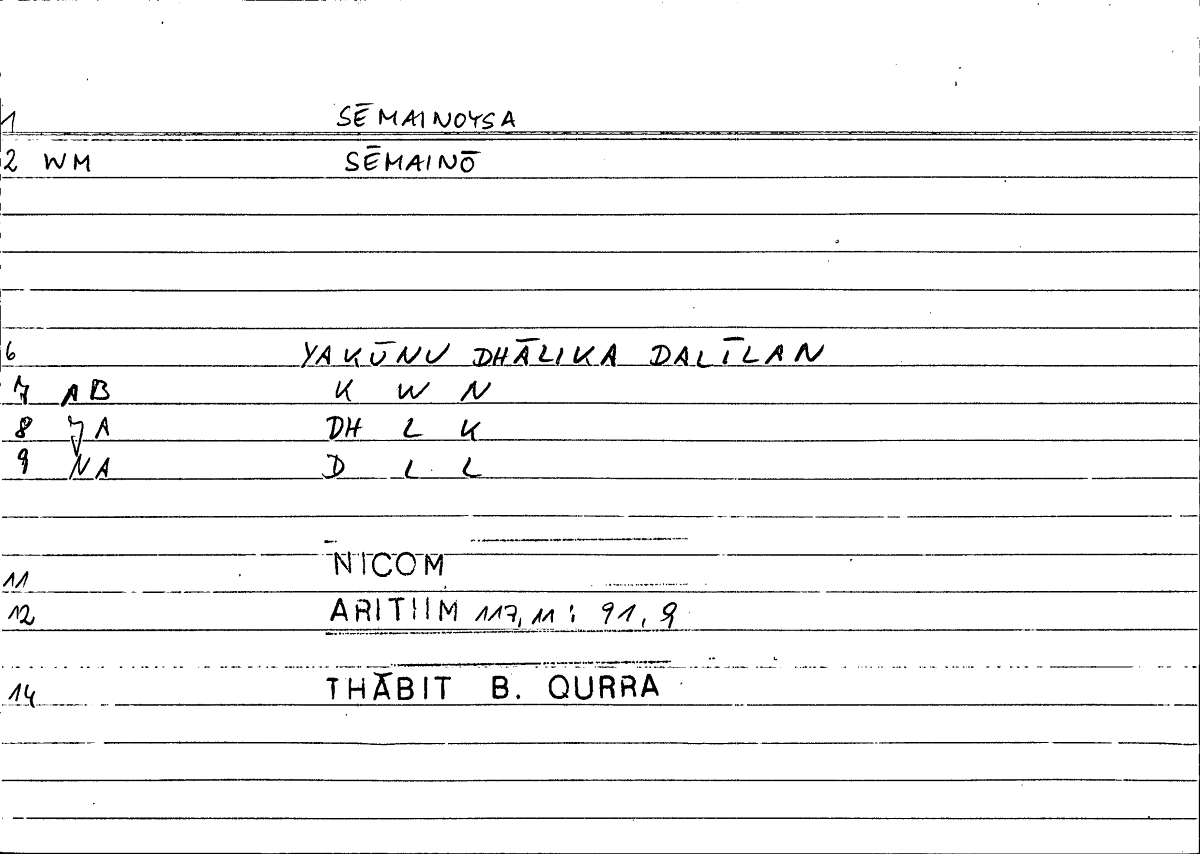 1 SĒMAINOYSA
2 WM SĒMAINŌ
6 YAKŪNU DHĀLIKA DALĪLAN
7 AB K W N
8 JA DH L K
9 NA D L L
11 NICOM
12 ARITIIM 117,11 : 91,9
14 THĀBIT B. QURRA